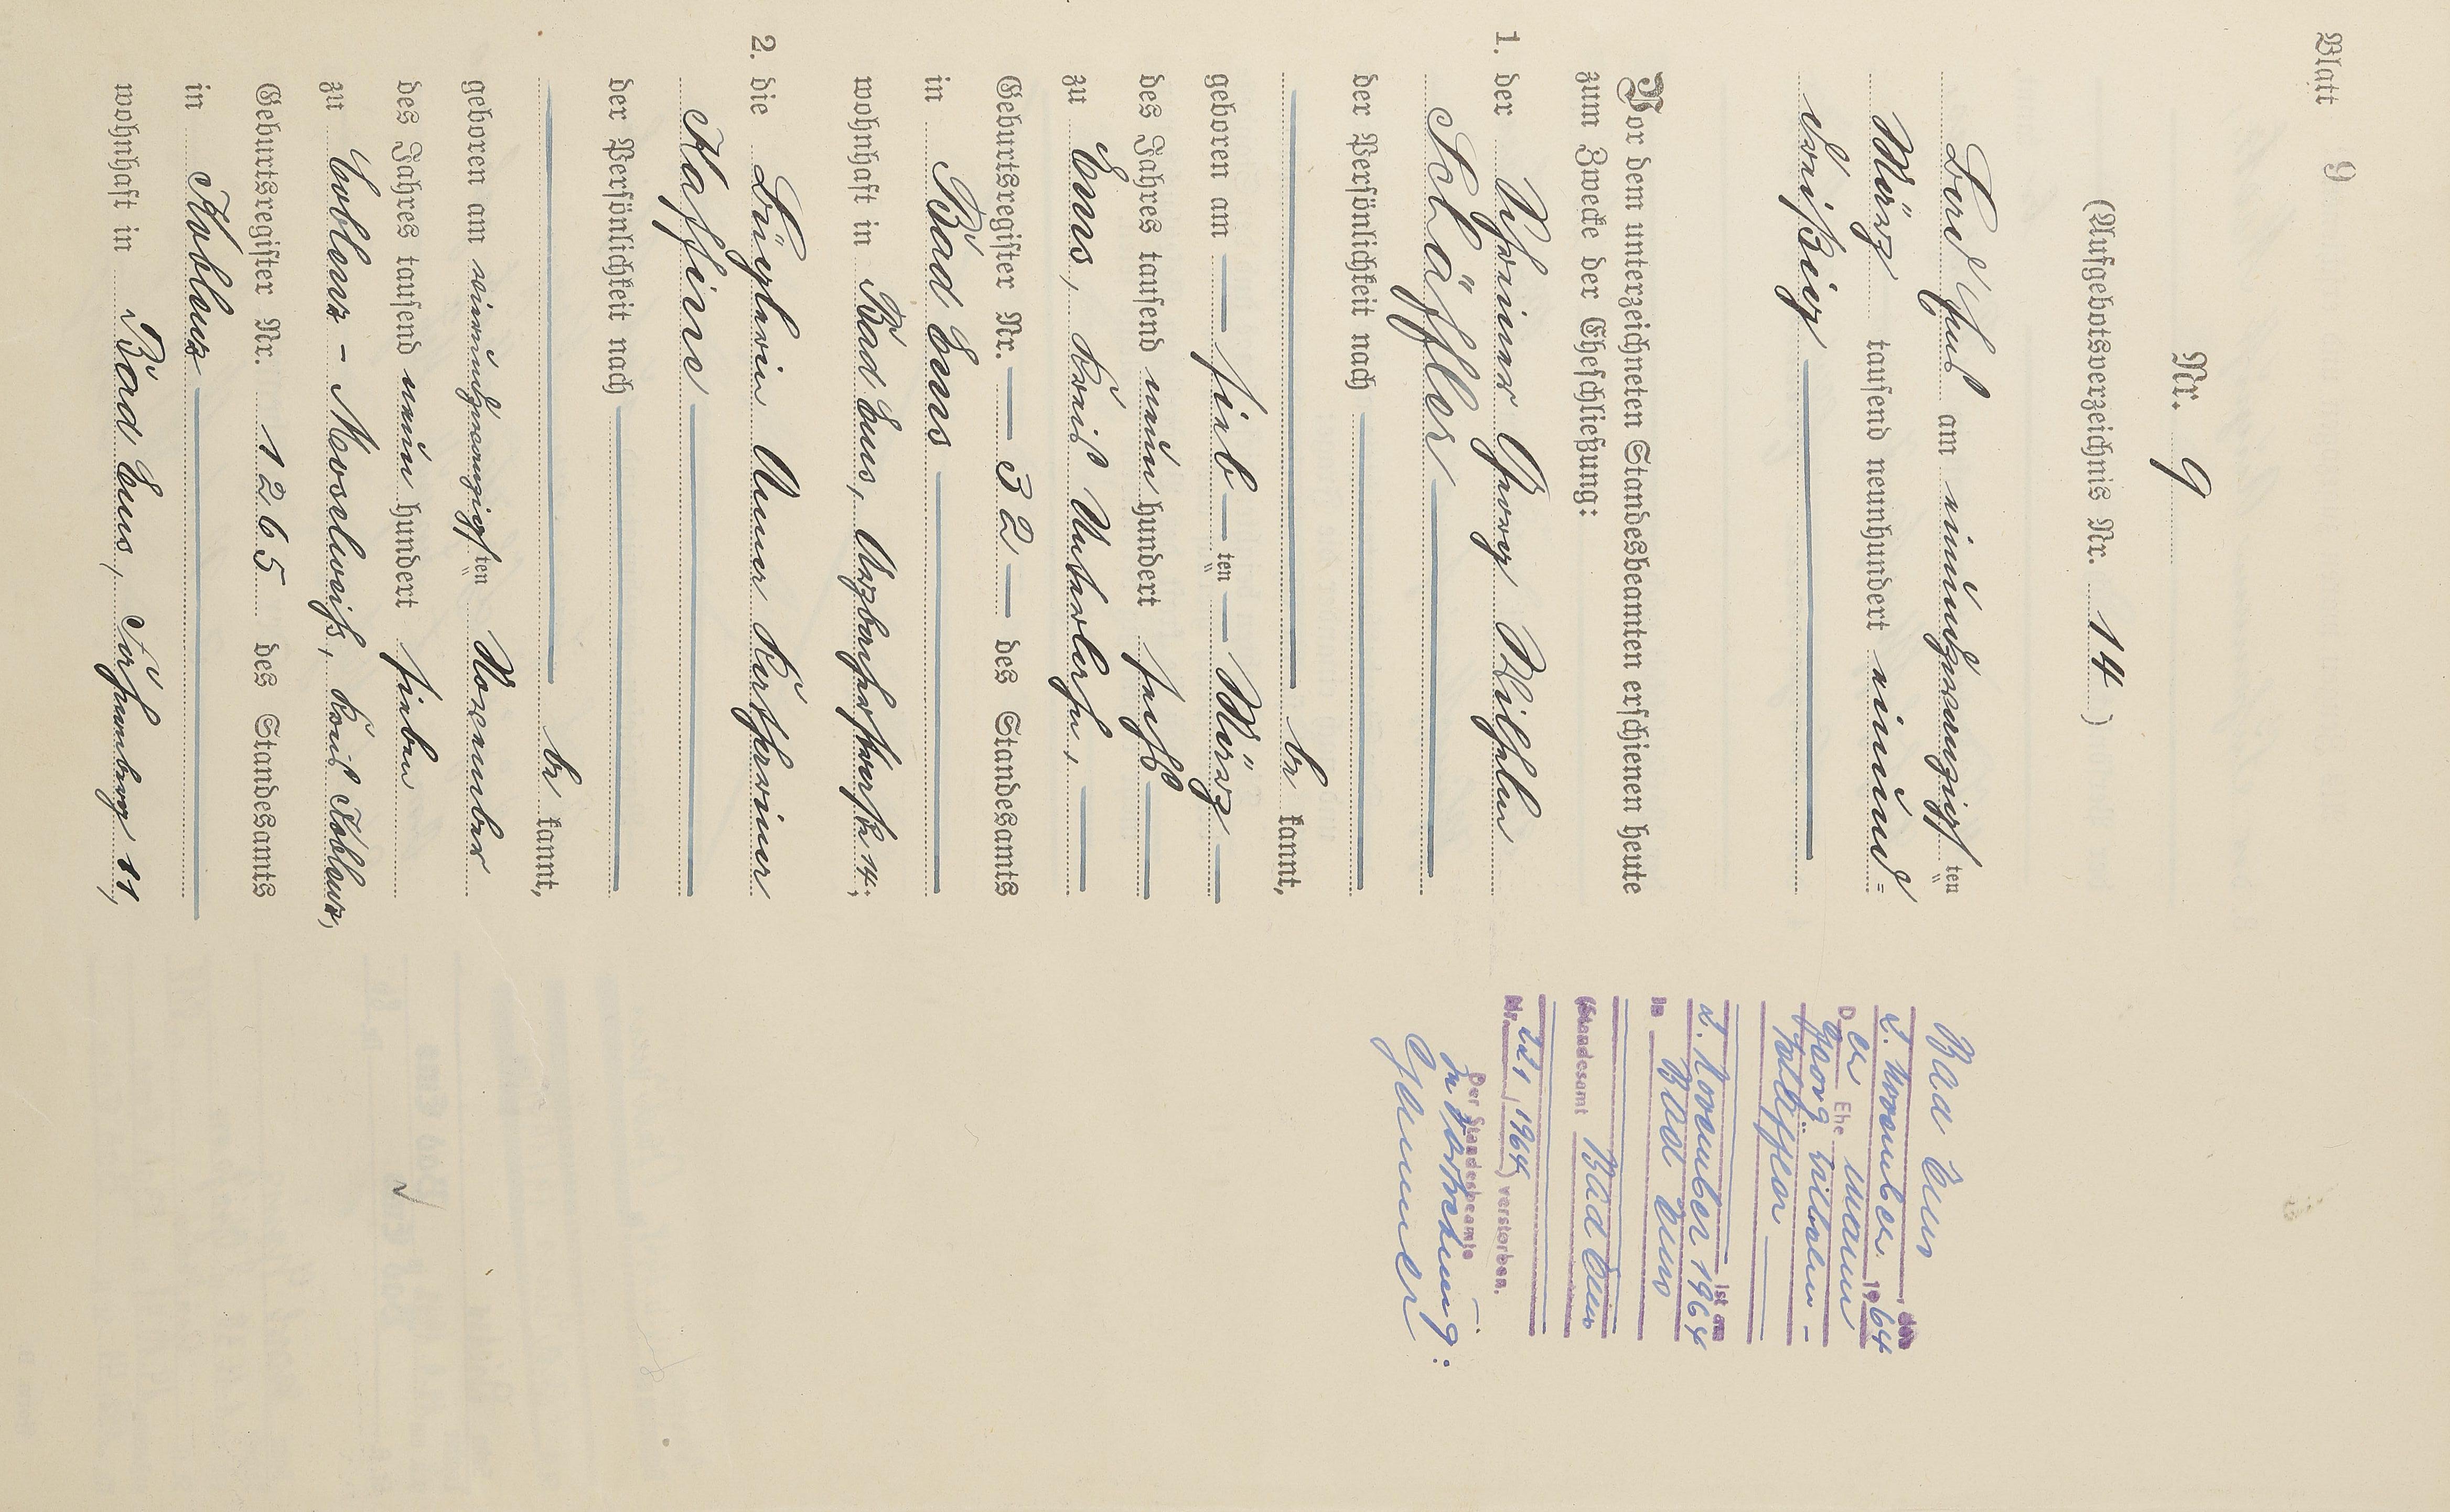 Blatt 9
Nr. 9
(Aufgebotsverzeichnis Nr. 14)
Bad Ems am einundzwanzigsten
März tausend neunhundert einund=
dreißig
Vor dem unterzeichneten Standesbeamten erschienen heute
zum Zwecke der Eheschließung:
1. der Georg Wilhelm
Schäffler
der Persönlichkeit nach
be kannt,
geboren am sieb ten März
des Jahres tausend neun hundert sechs
zu Ems, Kreis Unterlahn,
Geburtsregister Nr. 32 des Standesamts
in Bad Ems
wohnhaft in Bad Ems, Arzbacherstraße 14;
2. die Büglerin Anna Katharina
Kaffine
der Persönlichkeit nach
be kannt,
geboren am einundzwanzigsten November
des Jahres tausend neun hundert sieben
zu Coblenz - Moselweiß, Kreis Koblenz,
Geburtsregister Nr. 1265 des Standesamts
in Koblenz
wohnhaft in Bad Ems, 11,
Bad Ems, den
2. November 1964
Der Ehemann
Georg Wilhelm -
Schäffler
ist am
2. November 1964
in Bad Ems
(Standesamt Bad Ems
Nr. 221/1964) verstorben.
Der Standesbeamte
In Vertretung: